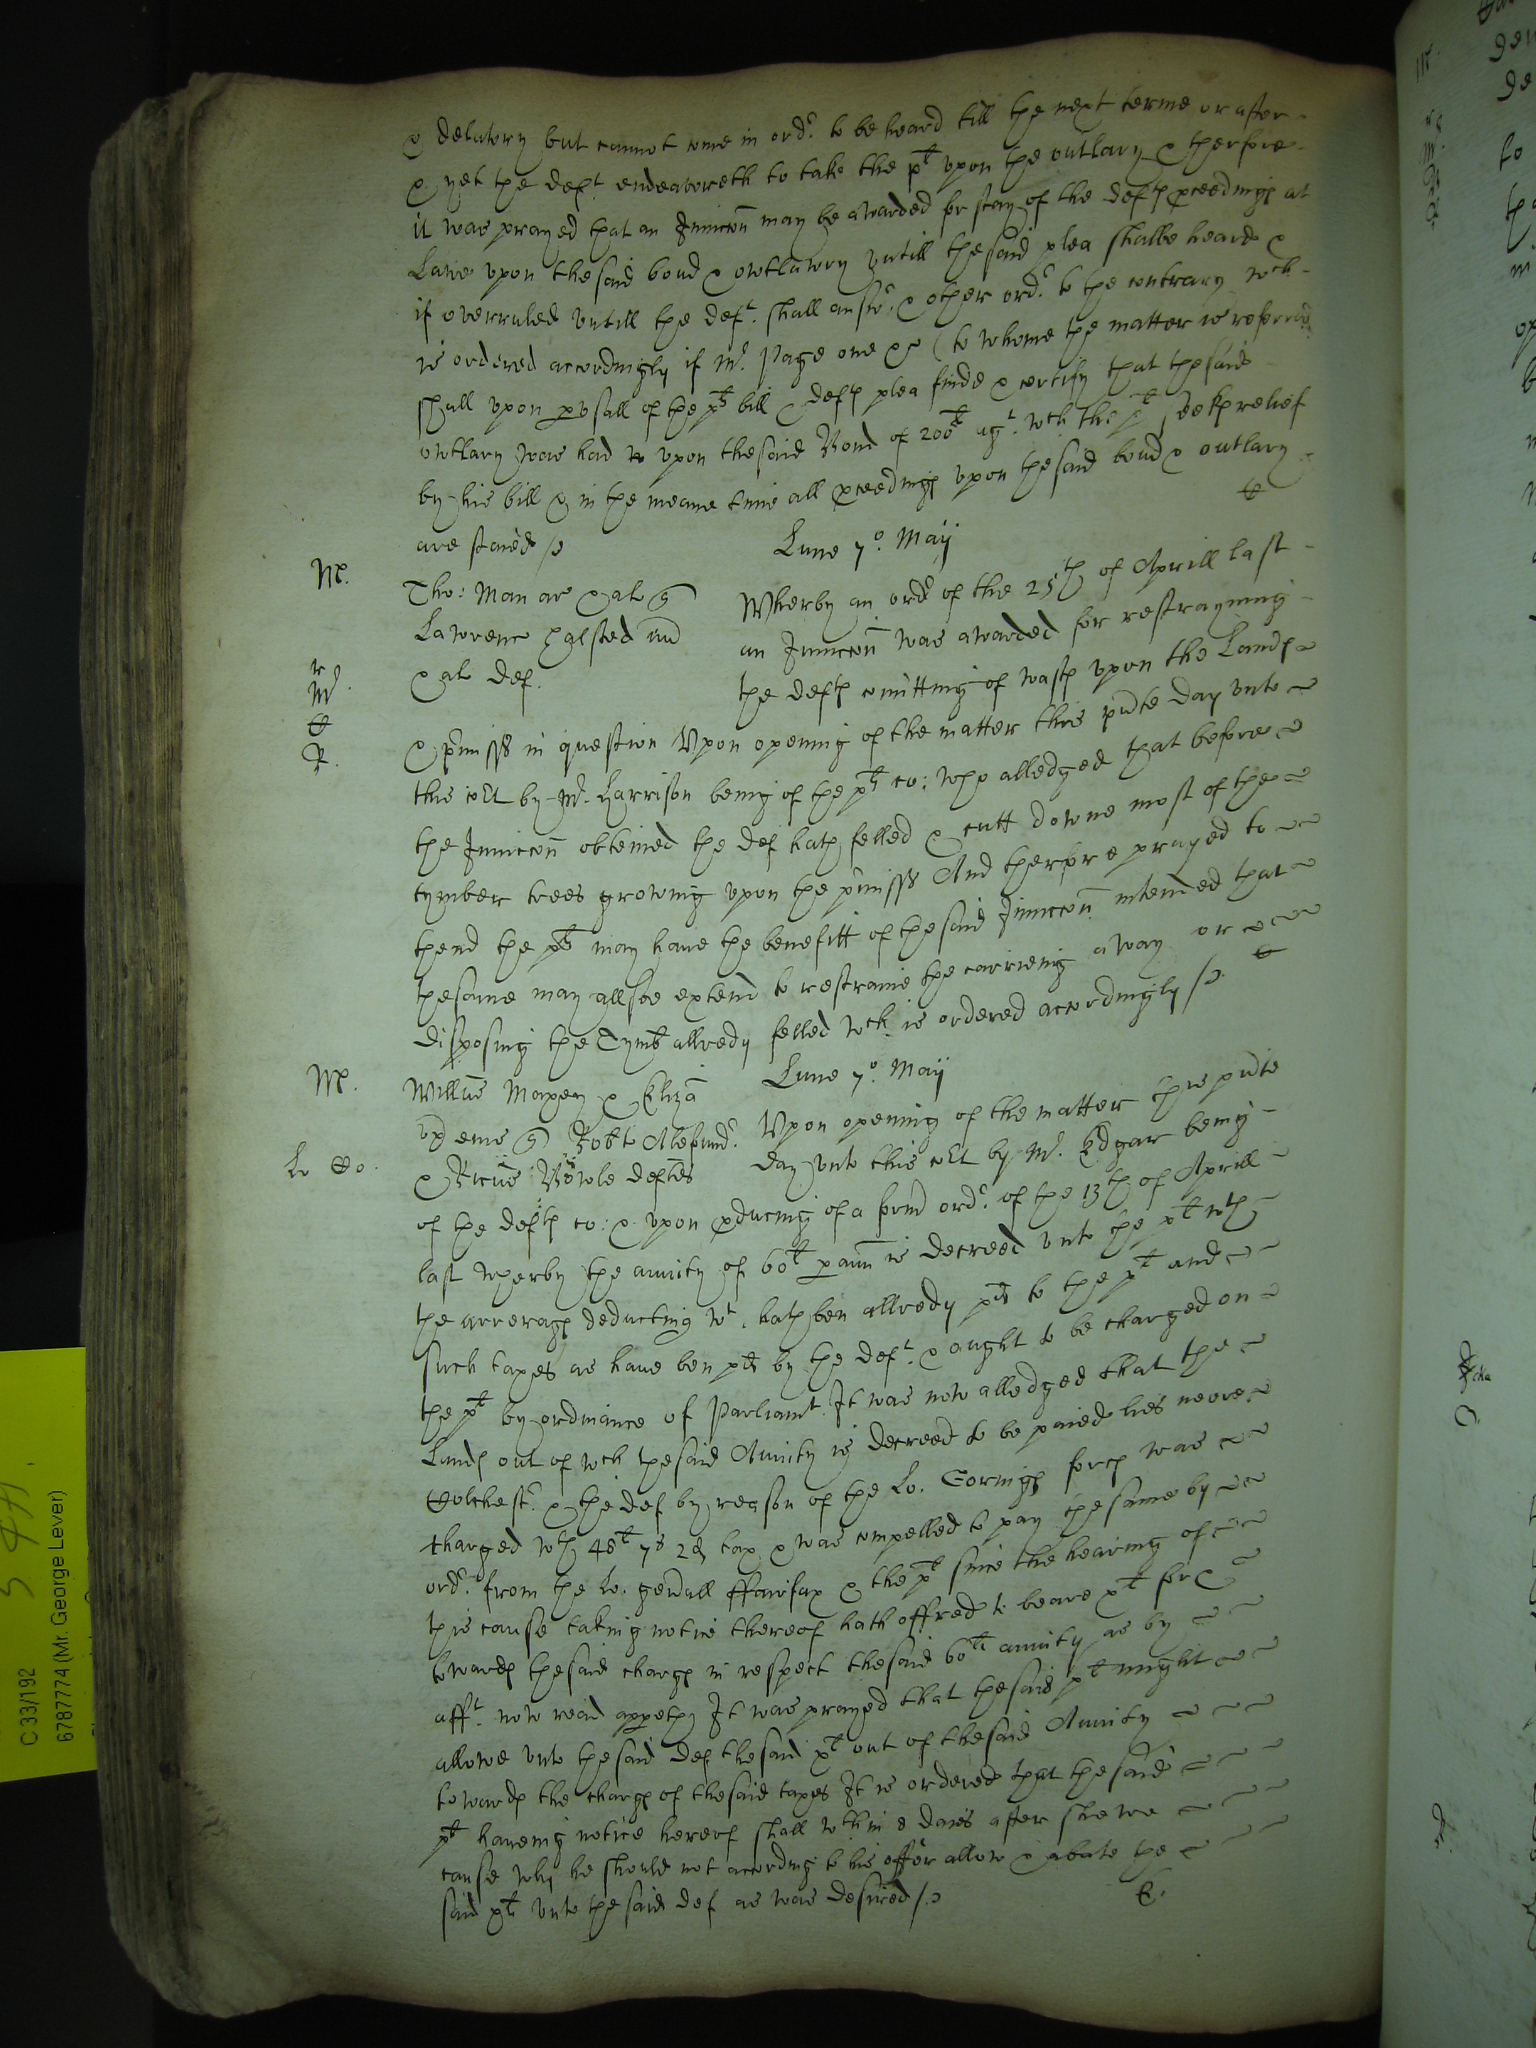 & delatory but cannot come in ordr. to be heard till the next terme or after
& yet the deft. endeavoreth to take the plt upon the outlary & therfore
it was prayed that an Iniuccon may be awarded for stay of the defts pceedings at
Lawe upon the said bond & outlawry untill the said plea shalbe heard &
if overruled untill the deft. shall answr. & other ordr. to the contrary wch
is ordered accordingly if Mr. Page one &c (to whome the matter is referred
shall upon pusall of the plts bill & defts plea finde & certify that the said
outlary was had upon the said Bond of 200li agt. wch the plt seeks relief
by his bill & in the meane time all pceedings upon the said bond & outlary
are staied /
Lune 7o. Maij
Tho: Man ar & al q
Lawrence Halsted
& al def.
Wherby an ordr of the 25th of Aprill last
an Iniuccon was awarded for restrayning
the defts comitting of wasts upon the Lands
& pmisss in question Upon opening of the matter this pnte day unto
this Cort by Mr. Harrison being of the plts co: who alledged that before
the Iniuccon obteined the def hath felled & cutt downe most of the
tymber trees growing upon the pmisss And therfore prayed to
thend the plts may have the benefitt of the said Iniuccon intended that
the same may allsoe extend to restraine the carrieng away or
disposing the Tymb allredy felled wch is ordered accordingly /
Lune 7o. Maij
Willus Maxey & Eliza
ux eius q Robto Alefound.
& Ricus Bowle defts
Upon opening of the matter this pnte
day unto this Cort by Mr. Edgar being
of the defts co: & upon pducing of a form ordr. of the 13th of Aprill
last wherby the anuity of 60li p ann is decreed unto the plt wth
the arrerags deducting wt. hath ben allredy pd to the plt and
such taxes as have ben pd by the deft. & ought to be charged on
the plt by ordinance of Parliamt It was now alledged that the
Lands out of wch the said Anuity is decreed to be paied lies neere
Colchestr. & the def by reason of the Lo. Gorings forcs was
charged wth 48li 7s 2d tax & was compelled to pay the same by
ordr. from the Lo. genall ffairfax & the plt since the hearing of
this cause taking notice thereof hath offred to beare pt for &
towards the said charge in respect the said 60li anuity as by
afft. now read appeth It was prayed that the said plt might
allowe unto the said def the said pt out of the said Anuity
towards the charge of the said taxes It is ordered that the said
plt haveing notice hereof shall wthin 8 daies after shewe
cause why he should not according to his offer allow & abate the
said pt unto the said def as was desired /
C 33/192
6787774 (Mr. George Lever)